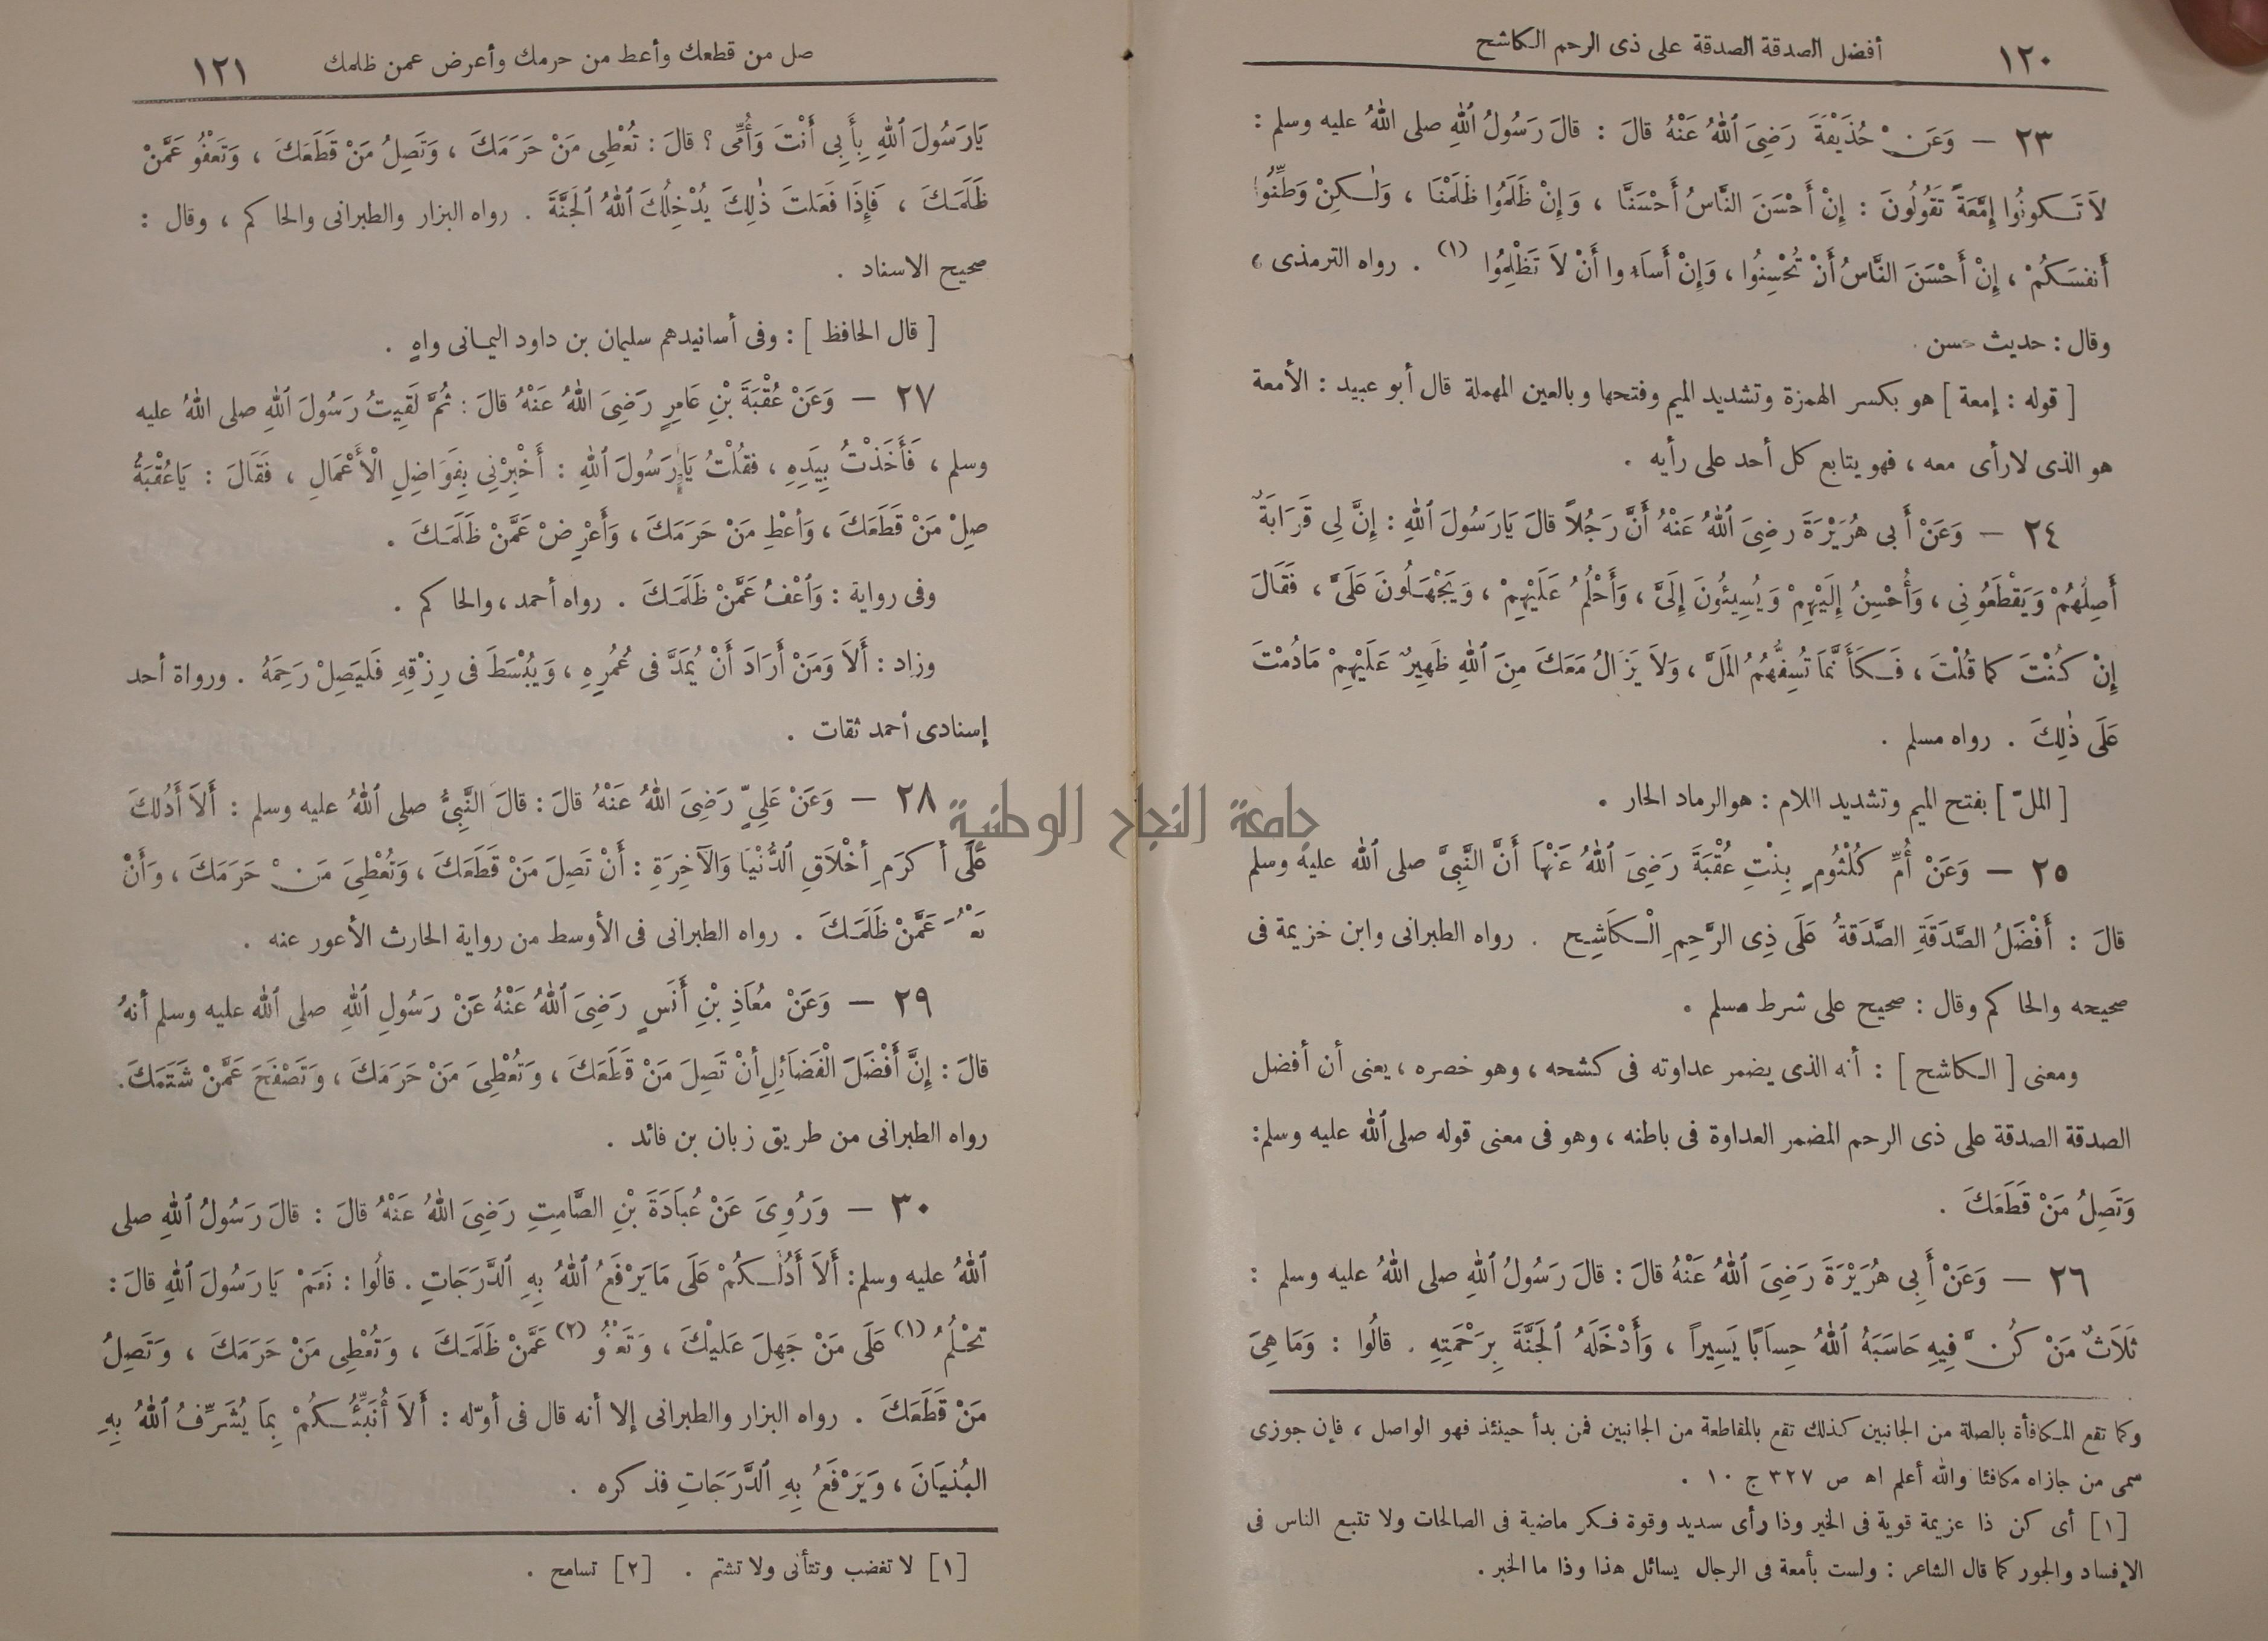 ١٢٠ أفضل الصدقة الصدقة على ذى الرحم الكاشح
٢٣ — وَعَنْ حُذَيْفَةَ رَضِىَ اللهُ عَنْهُ قالَ : قالَ رَسُولُ اللهِ صلى اللهُ عليه وسلم :
لاَ تَكونُوا إِمَّعَةً تَقُولُونَ : إِنْ أَحْسَنَ النَّاسُ أَحْسَنَّا ، وَإِنْ ظَلَمُوا ظَلَمْنَا ، وَلٰكِنْ وَطِّنُوا
أَنفسَكُمْ ، إِنْ أَحْسَنَ النَّاسُ أَنْ تُحْسِنُوا ، وَإِنْ أَسَاءوا أَنْ لاَ تَظْلِمُوا (١) . رواه الترمذى ،
وقال : حديث حسن .
[ قوله : إمعة ] هو بكسر الهمزة وتشديد الميم وفتحها وبالعين المهملة قال أبو عبيد : الأمعة
هو الذى لارأى معه ، فهو يتابع كل أحد على رأيه .
٢٤ — وَعَنْ أَبى هُرَيْرَةَ رضِىَ اللهُ عَنْهُ أَنَّ رَجُلاً قالَ يَارَسُولَ اللهِ : إِنَّ لِى قَرَابَةً
أَصِلُهُمْ وَيَقْطَعُونِى ، وَأُحْسِنُ إِلَيْهِمْ وَيُسِيئُونَ إِلَىَّ ، وَأَحْلُمُ عَلَيْهِمْ ، وَيَجْهَلُونَ عَلَىَّ ، فَقَالَ
إِنْ كُنْتَ كما قُلْتَ ، فَكَأَنَّمَا تُسِفُّهُمُ المَلَّ ، وَلاَ يَزَالُ مَعَكَ مِنَ اللهِ ظَهِيرٌ عَلَيْهِمْ مَادُمْتَ
عَلَى ذٰلِكَ . رواه مسلم .
[ الملّ ] بفتح الميم وتشديد اللام : هوالرماد الحار .
٢٥ — وَعَنْ أُمِّ كُلْثُومٍ بِنْتِ عُقْبَةَ رَضِىَ اللهُ عَنْهَا أَنَّ النَّبِىَّ صلى الله عليه وسلم
قالَ : أَفْضَلُ الصَّدَقَةِ الصَّدَقَةُ عَلَى ذِى الرَّحِمِ الْكَاشِحِ . رواه الطبرانى وابن خزيمة فى
صحيحه والحاكم وقال : صحيح على شرط مسلم .
ومعنى [ الكاشح ] : أنه الذى يضمر عداوته فى كشحه ، وهو خصره ، يعنى أن أفضل
الصدقة الصدقة على ذى الرحم المضمر العداوة فى باطنه ، وهو فى معنى قوله صلى الله عليه وسلم :
وَتَصِلُ مَنْ قَطَعَكَ .
٢٦ — وَعَنْ أَبِى هُرَيْرَةَ رَضِىَ اللهُ عَنْهُ قالَ : قالَ رَسُولُ اللهِ صلى اللهُ عليه وسلم :
ثَلاَثٌ مَنْ كُنَّ فِيهِ حَاسَبَهُ اللهُ حِسَابًا يَسِيراً ، وَأَدْخَلَهُ الجَنَّةَ بِرَحْمَتِهِ . قالُوا : وَمَا هِىَ
وكما تقع المكافأة بالصلة من الجانبين كذلك تقع بالمقاطعة من الجانبين فمن بدأ حينئذ فهو الواصل ، فإن جوزى
سمى من جازاه مكافئا والله أعلم اهـ ص ٣٢٧ ج ١٠ .
[١] أى كن ذا عزيمة قوية فى الخير وذا رأى سديد وقوة فكر ماضية فى الصالحات ولا تتبع الناس فى
الإفساد والجور كما قال الشاعر : ولست بأمعة فى الرجال يسائل هذا وذا ما الخبر .
صل من قطعك وأعط من حرمك وأعرض عمن ظلمك ١٢١
يَارَسُولَ اللهِ بِأَبِى أَنْتَ وَأُمِّى ؟ قالَ : تُعْطِى مَنْ حَرَمَكَ ، وَتَصِلُ مَنْ قَطَعَكَ ، وَتَعْفُو عَمَّنْ
ظَلَمَكَ ، فَإِذَا فَعَلتَ ذٰلِكَ يُدْخِلُكَ اللهُ الجَنَّةَ . رواه البزار والطبرانى والحاكم ، وقال :
صحيح الاسناد .
[ قال الحافظ ] : وفى أسانيدهم سليمان بن داود اليمانى واهٍ .
٢٧ — وَعَنْ عُقْبَةَ بْنِ عَامِرٍ رَضِىَ اللهُ عَنْهُ قالَ : ثُمَّ لَقِيتُ رَسُولَ اللهِ صلى اللهُ عليه
وسلم ، فَأَخَذْتُ بِيَدِهِ ، فقُلْتُ يَارَسُولَ اللهِ : أَخْبِرْنِى بِفَوَاضِلِ الْأَعْمَالِ ، فَقَالَ : يَاعُقْبَةُ
صِلْ مَنْ قَطَعَكَ ، وَأعْطِ مَنْ حَرَمَكَ ، وَأَعْرِضْ عَمَّنْ ظَلَمَكَ .
وفى رواية : وَاعْفُ عَمَّنْ ظَلَمَكَ . رواه أحمد ، والحاكم .
وزاد : أَلاَ وَمَنْ أَرَادَ أَنْ يُمَدَّ فى عُمُرِهِ ، وَيُبْسَطَ فى رِزْقِهِ فَليَصِلْ رَحِمَهُ . ورواة أحد
إسنادى أحمد ثقات .
٢٨ — وَعَنْ عَلِىٍّ رَضِىَ اللهُ عَنْهُ قالَ : قالَ النَّبِىُّ صلى اللهُ عليه وسلم : أَلاَ أَدُلكَ
عَلَى أكرَمِ أخْلاَقِ الدُّنْيَا وَالآخِرَةِ : أَنْ تَصِلَ مَنْ قَطَعَكَ ، وَتُعْطِىَ مَنْ حَرَمَكَ ، وَأَنْ
عَمَّنْ ظَلَمَكَ . رواه الطبرانى فى الأوسط من رواية الحارث الأعور عنه .
٢٩ — وَعَنْ مُعَاذِ بْنِ أَنَسٍ رَضِىَ اللهُ عَنْهُ عَنْ رَسُولِ اللهِ صلى الله عليه وسلم أنهُ
قالَ : إِنَّ أَفْضَلَ الْفَضَائِلِ أنْ تَصِلَ مَنْ قَطَعَكَ ، وَتُعْطِىَ مَنْ حَرَمَكَ ، وَتَصْفَحَ عَمَّنْ شَتَمَكَ .
رواه الطبرانى من طريق زبان بن فائد .
٣٠ — وَرُوِىَ عَنْ عُبَادَةَ بْنِ الصَّامِتِ رَضِىَ اللهُ عَنْهُ قالَ : قالَ رَسُولُ اللهِ صلى
اللهُ عليه وسلم : أَلاَ أَدُلُّكُمْ عَلَى مَايَرْفَعُ اللهُ بِهِ الدَّرَجَاتِ . قالُوا : نَعَمْ يَا رَسُولَ اللهِ قالَ :
تَحْلُمُ (١) عَلَى مَنْ جَهِلَ عَليْكَ ، وَتَعْفُو (٢) عَمَّنْ ظَلَمَكَ ، وَتُعْطِى مَنْ حَرَمَكَ ، وَتَصِلُ
مَنْ قَطَعَكَ . رواه البزار والطبرانى إلا أنه قال فى أوّله : أَلاَ أُنَبِّئُكُمْ بِمَا يُشَرِّفُ اللهُ بِهِ
البُنيَانَ ، وَيَرْفَعُ بِهِ الدَّرَجَاتِ فذكره .
[١] لا تغضب وتتأنى ولا تشتم . [٢] تسامح .
جامعة النجاح الوطنية